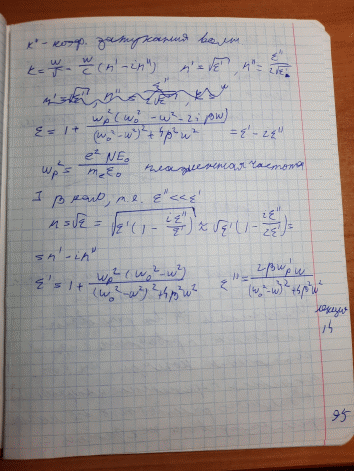 x" - коэф. затухания волн
k = w/v = w/c (n' - in") n' = √ε' , n" = ε"/2√ε'
n' = √ε' , n" = ε"/2√ε'
ε = 1 + wp²(w₀² - w² - 2iβw)/((w₀² - w²)² + 4β²w²) = ε' - iε"
wp² = e²NE₀/mₑε₀ плазменная частота
I β мало, т.е. ε" << ε'
n = √ε = √(ε'(1 - iε"/ε')) ≈ √ε'(1 - iε"/2ε') =
= n' - in"
ε' = 1 + wp²(w₀² - w²)/((w₀² - w²)² + 4β²w²) ε" = 2βwp²w/((w₀² - w²)² + 4β²w²)
лекция
14
95